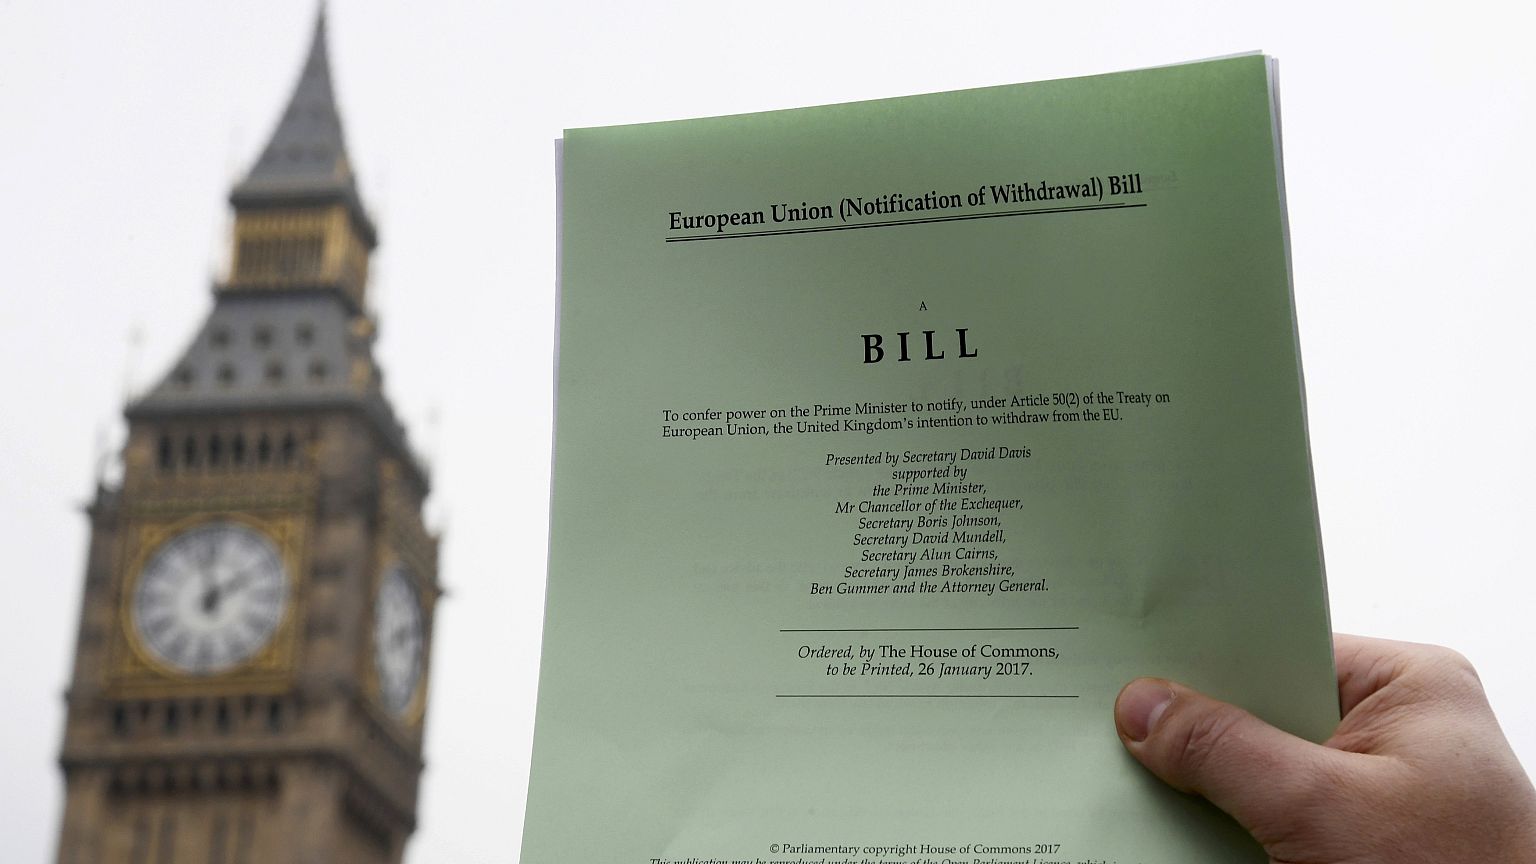 European Union (Notification of Withdrawal) Bill
A
BILL
To confer power on the Prime Minister to notify, under Article 50(2) of the Treaty on
European Union, the United Kingdom's intention to withdraw from the EU.
Presented by Secretary David Davis
supported by
the Prime Minister,
Mr Chancellor of the Exchequer,
Secretary Boris Johnson,
Secretary David Mundell,
Secretary Alun Cairns,
Secretary James Brokenshire,
Ben Gummer and the Attorney General.
Ordered, by The House of Commons,
to be Printed, 26 January 2017.
© Parliamentary copyright House of Commons 2017
This publication may be reproduced under the terms of the Open Parliament Licence, which i